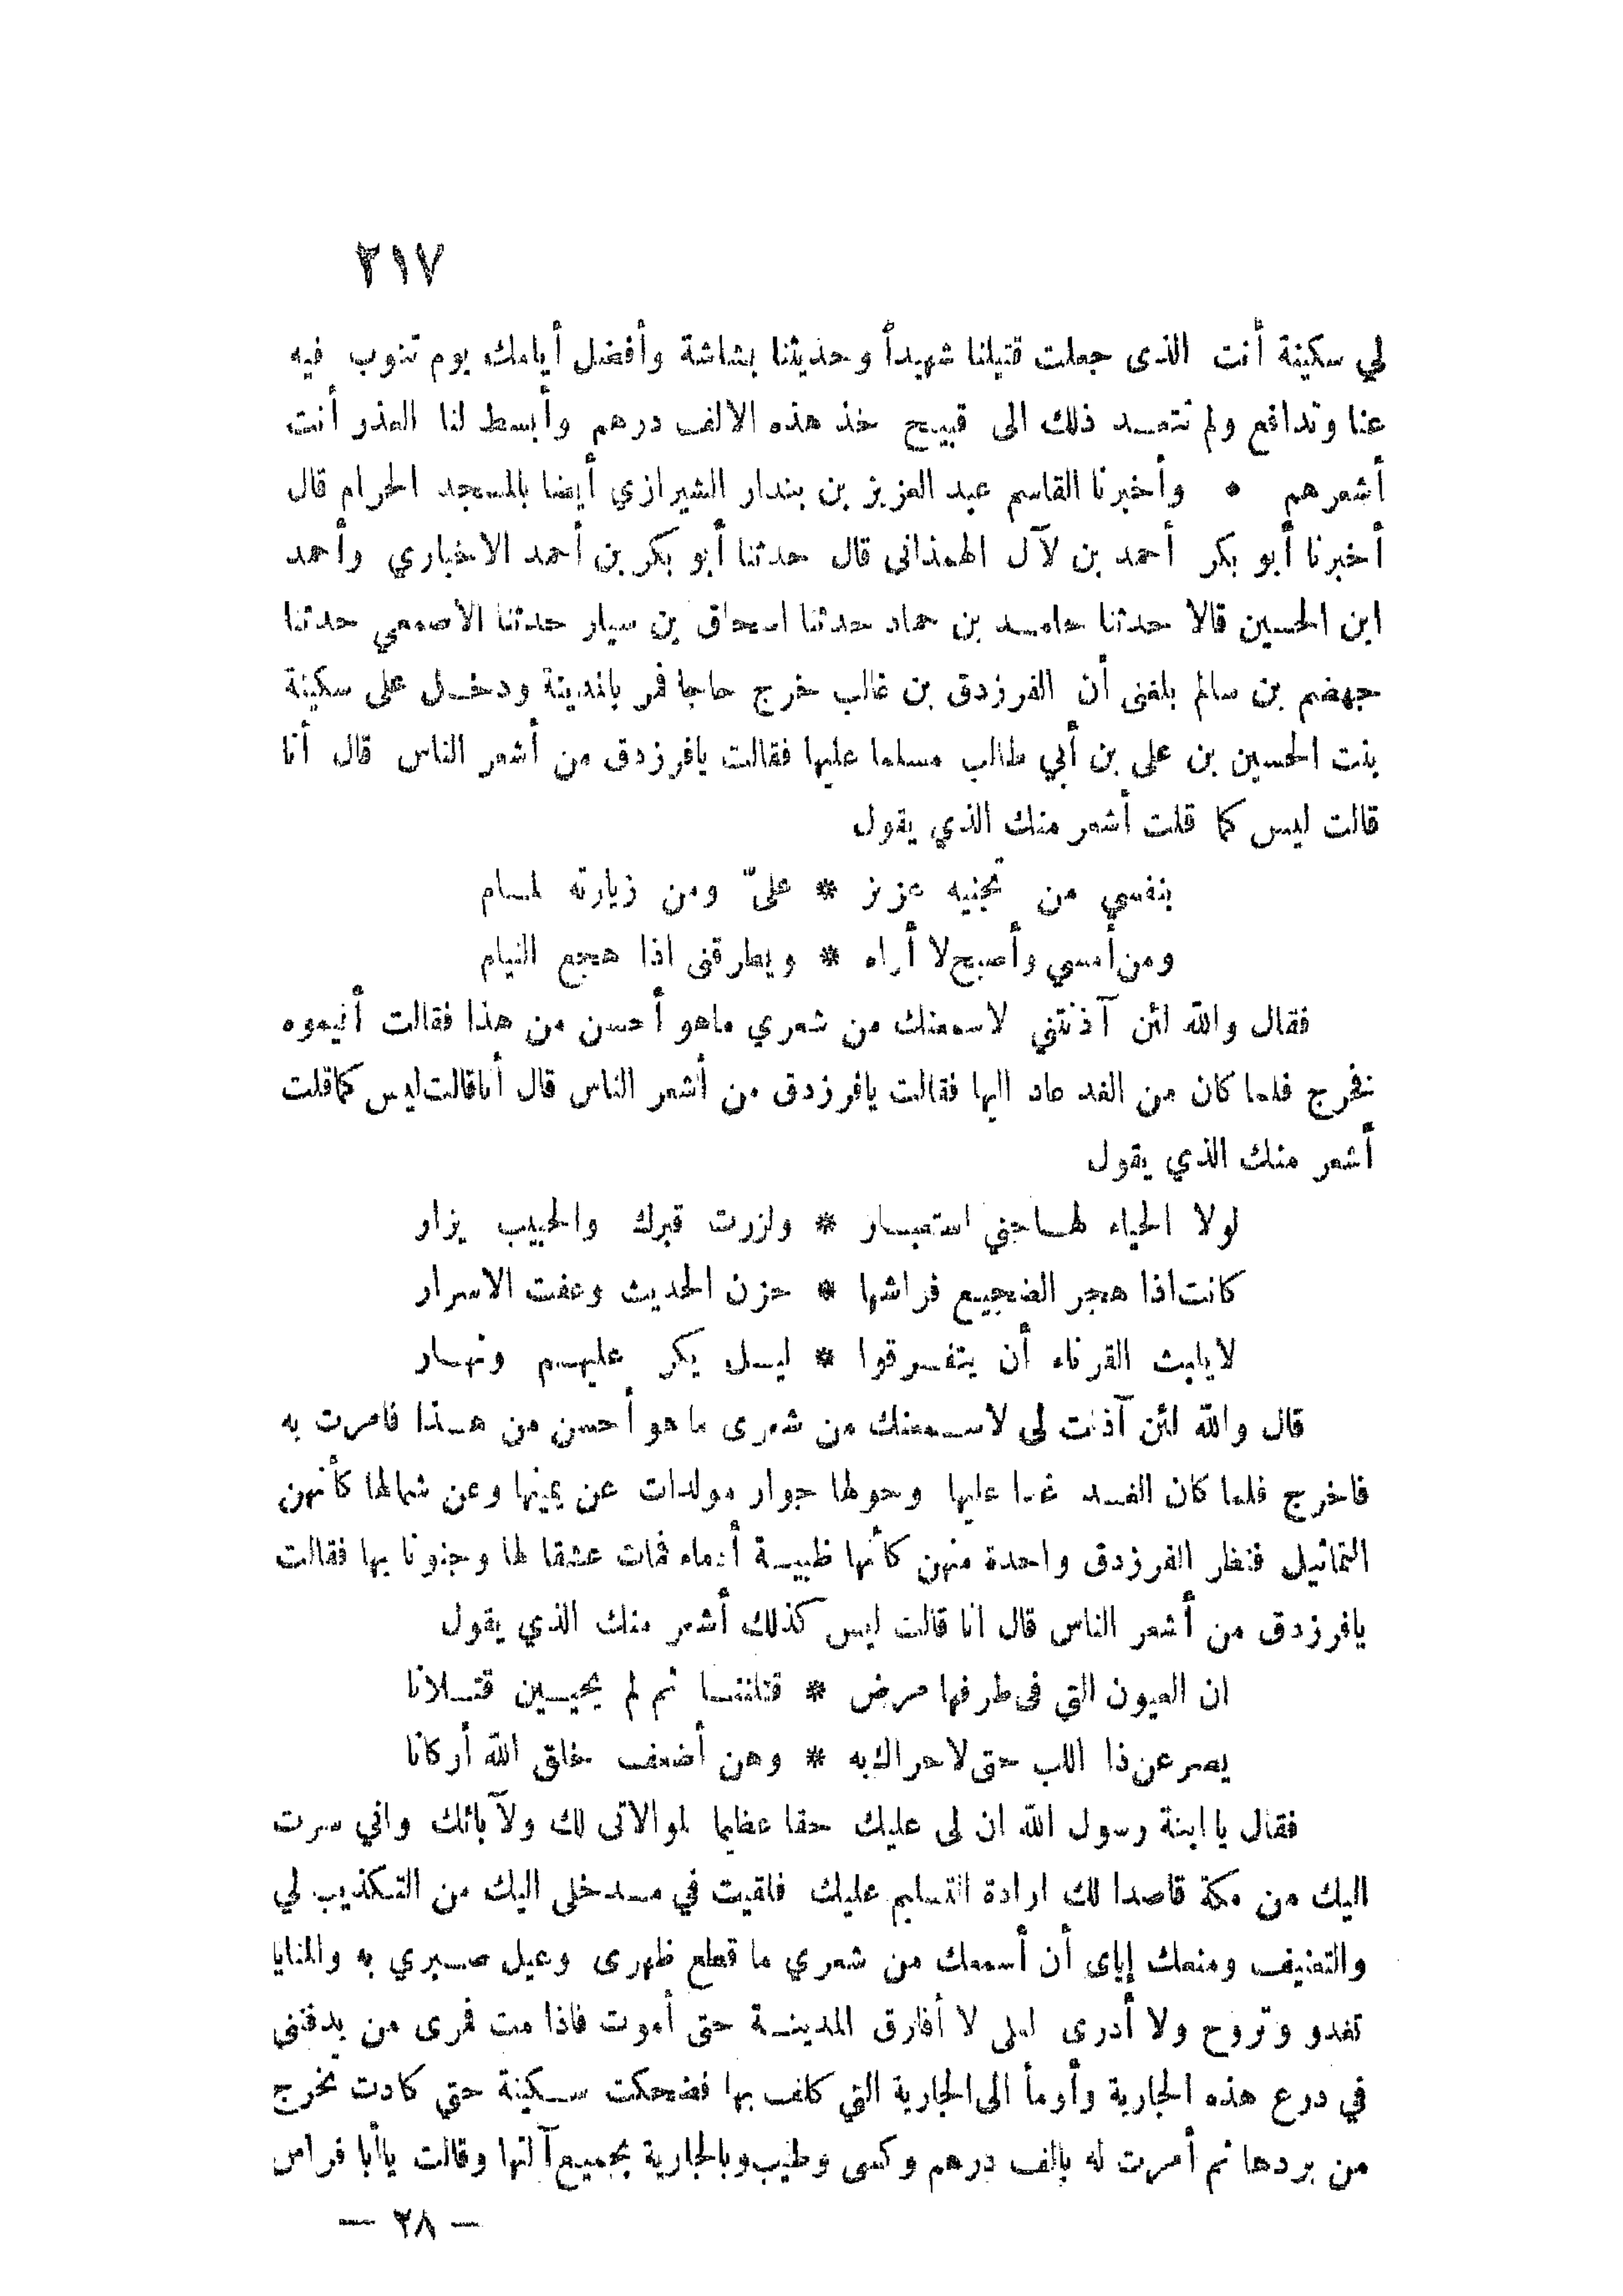 ٢١٧
لي سكينة أنت الذى جعلت قتيلنا شهيداً وحديثنا بشاشة وأفضل أيامك يوم تنوب فيه
عنا وتدافع ولم نتعمد ذلك الى قبيح خذ هذه الالف درهم وأبسط لنا العذر أنت
أشعرهم • وأخبرنا القاسم عبد العزيز بن بندار الشيرازي أيضا بالمسجد الحرام قال
أخبرنا أبو بكر أحمد بن لآل الهمذانى قال حدثنا أبو بكر بن أحمد الاخباري وأحمد
ابن الحسين قالا حدثنا حامد بن حماد حدثنا اسحاق بن سيار حدثنا الاصمعي حدثنا
جهضم بن سالم بلغنى أن الفرزدق بن غالب خرج حاجا فمر بالمدينة ودخل على سكينة
بنت الحسين بن على بن أبي طالب مسلما عليها فقالت يافرزدق من أشعر الناس قال أنا
قالت ليس كما قلت أشعر منك الذي يقول
بنفسي من تجنيه عزيز * علىّ ومن زيارته لمام
ومن أمسي وأصبح لا أراه * ويطرقنى اذا هجع النيام
فقال والله لئن آذنتني لاسمعنك من شعري ماهو أحسن من هذا فقالت أقيموه
فخرج فلما كان من الغد عاد اليها فقالت يافرزدق من أشعر الناس قال أنا قالت ليس كما قلت
أشعر منك الذي يقول
لولا الحياء لهاجني استعبار * ولزرت قبرك والحبيب يزار
كانت اذا هجر الضجيع فراشها * حزن الحديث وعفت الاسرار
لايلبث القرناء أن يتفرقوا * ليل يكر عليهم ونهار
قال والله لئن آذنت لى لاسمعنك من شعرى ما هو أحسن من هذا فامرت به
فاخرج فلما كان الغد غدا عليها وحولها جوار مولدات عن يمينها وعن شمالها كأنهن
التماثيل فنظر الفرزدق واحدة منهن كأنها ظبية أدماء فمات عشقا لها وجنونا بها فقالت
يافرزدق من أشعر الناس قال انا قالت ليس كذلك أشعر منك الذي يقول
ان العيون التي فى طرفها مرض * قتلننا ثم لم يحيين قتلانا
يصرعن ذا اللب حتى لاحراك به * وهن أضعف خلق الله أركانا
فقال يا ابنة رسول الله ان لى عليك حقا عظيما لموالاتى لك ولآبائك واني سرت
اليك من مكة قاصدا لك ارادة التسليم عليك فلقيت في مدخلى اليك من التكذيب لي
والتعنيف ومنعك إياى أن أسمعك من شعري ما قطع ظهرى وعيل صبري به والمنايا
تغدو وتروح ولا أدرى لعلى لا أفارق المدينة حتى أموت فاذا مت فمرى من يدفننى
في درع هذه الجارية وأومأ الى الجارية التي كلف بها فضحكت سكينة حتى كادت تخرج
من بردها ثم أمرت له بالف درهم وكسى وطيب وبالجارية بجميع آلتها وقالت ياأبا فراس
— ٢٨ —